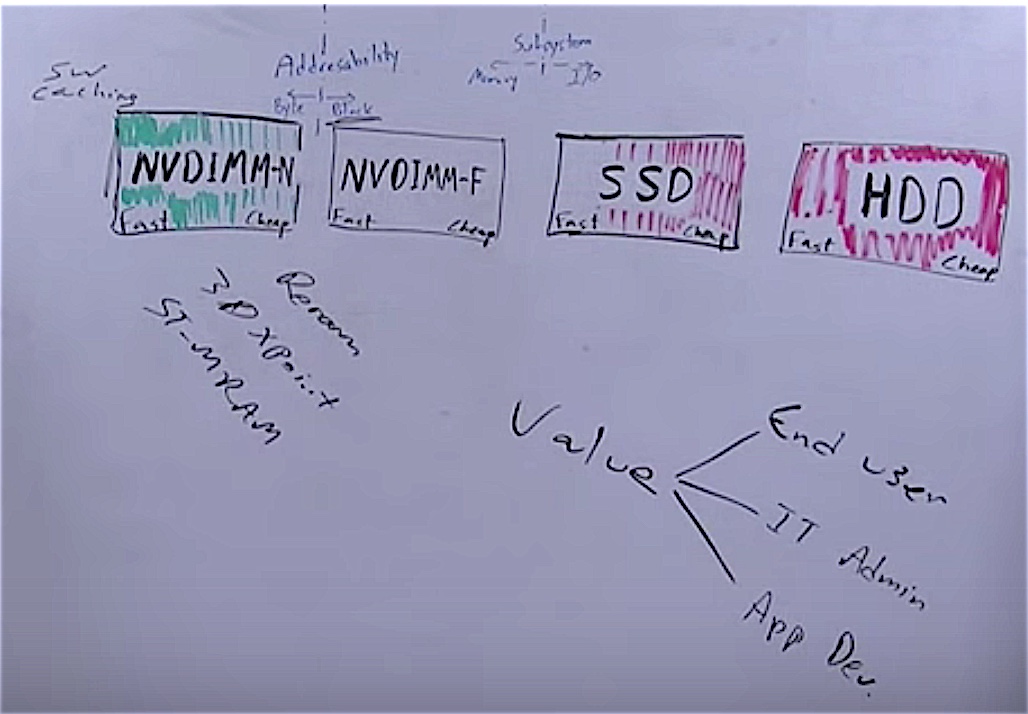 SW
Caching
Addresability
Byte Block
Subsystem
Memory I/O
NVDIMM-N
Fast Cheap
NVDIMM-F
Fast Cheap
SSD
Fast Cheap
HDD
Fast Cheap
Reram
3D XPoint
ST-MRAM
Value
End user
IT Admin
App Dev.